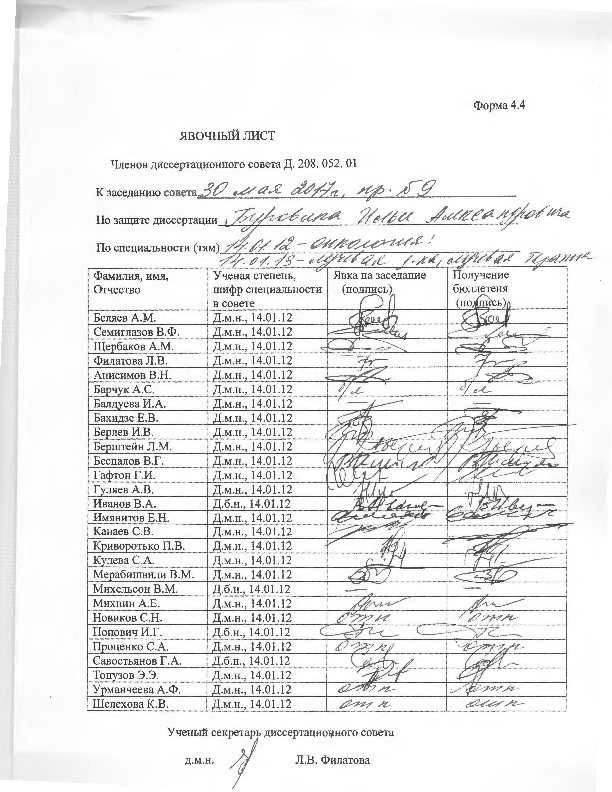 Форма 4.4
ЯВОЧНЫЙ ЛИСТ
Членов диссертационного совета Д. 208. 052. 01
К заседанию совета 30 мая 2017г, пр. №9
По защите диссертации Ильи Александровича
По специальности (там) 14.01.12 - онкология;
14.01.13 - лучевая лучевая терапия
Фамилия, имя, Отчество Ученая степень, шифр специальности в совете Явка на заседание (подпись) Получение бюллетеня (подпись)
Беляев А.М. Д.м.н., 14.01.12
Семиглазов В.Ф. Д.м.н., 14.01.12
Щербаков А.М. Д.м.н., 14.01.12
Филатова Л.В. Д.м.н., 14.01.12
Анисимов В.Н. Д.м.н., 14.01.12
Барчук А.С. Д.м.н., 14.01.12 б/л б/л
Балдуева И.А. Д.м.н., 14.01.12 — —
Бахидзе Е.В. Д.м.н., 14.01.12
Берлев И.В. Д.м.н., 14.01.12
Берштейн Л.М. Д.м.н., 14.01.12
Беспалов В.Г. Д.м.н., 14.01.12
Гафтон Г.И. Д.м.н., 14.01.12
Гуляев А.В. Д.м.н., 14.01.12
Иванов В.А. Д.б.н., 14.01.12
Имянитов Е.Н. Д.м.н., 14.01.12
Канаев С.В. Д.м.н., 14.01.12
Криворотько П.В. Д.м.н., 14.01.12
Кулева С.А. Д.м.н., 14.01.12
Мерабишвили В.М. Д.м.н., 14.01.12
Михельсон В.М. Д.б.н., 14.01.12 — —
Михнин А.Е. Д.м.н., 14.01.12
Новиков С.Н. Д.м.н., 14.01.12 отп отп
Попович И.Г. Д.б.н., 14.01.12
Проценко С.А. Д.м.н., 14.01.12 отп отп
Савостьянов Г.А. Д.б.н., 14.01.12
Топузов Э.Э. Д.м.н., 14.01.12
Урманчеева А.Ф. Д.м.н., 14.01.12 отп отп
Шелехова К.В. Д.м.н., 14.01.12 отп отп
Ученый секретарь диссертационного совета
д.м.н. Л.В. Филатова